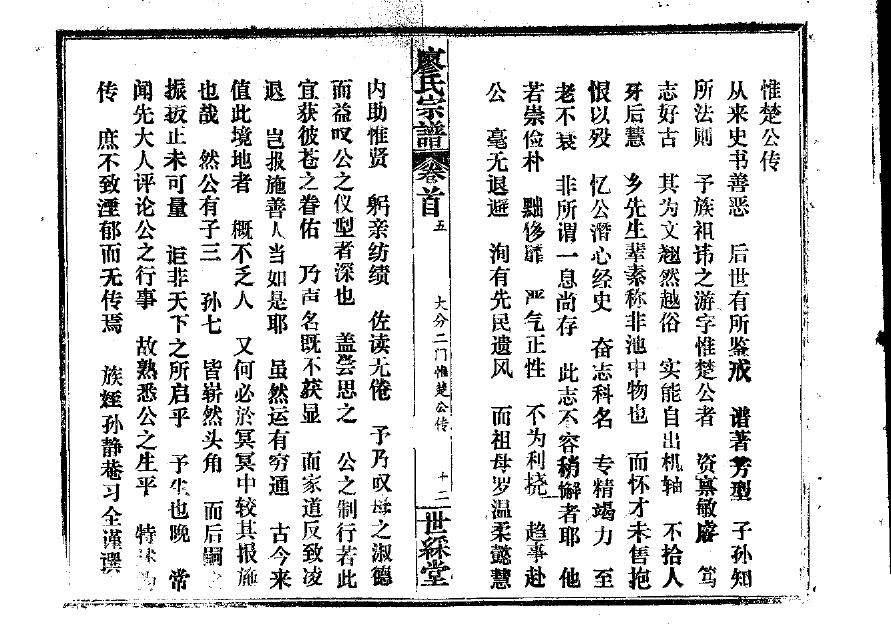 惟楚公传
从来史书善恶 后世有所鉴戒 谱著芳型 子孙知
所法则 予族祖讳之游字惟楚公者 资禀敏睿 笃
志好古 其为文翘然越俗 实能自出机轴 不拾人
牙后慧 乡先生辈素称非池中物也 而怀才未售抱
恨以殁 忆公潜心经史 奋志科名 专精竭力 至
老不衰 非所谓一息尚存 此志不容稍懈者耶 他
若崇俭朴 黜侈靡 严气正性 不为利挠 趋事赴
公 毫无退避 洵有先民遗风 而祖母罗温柔懿慧
廖氏宗谱 卷首 五 大分二门惟楚公传 十二 世綵堂
内助惟贤 躬亲纺绩 佐读无倦 予乃叹母之淑德
而益叹公之仪型者深也 盖尝思之 公之制行若此
宜获彼苍之眷佑 乃声名既不获显 而家道反致凌
退 岂报施善人当如是耶 虽然运有穷通 古今来
值此境地者 概不乏人 又何必於冥冥中较其报施
也哉 然公有子三 孙七 皆崭然头角 而后嗣
振拔正未可量 讵非天下之所启乎 予生也晚 常
闻先大人评论公之行事 故熟悉公之生平 特
传 庶不致湮郁而无传焉 族姪孙静菴习全谨撰